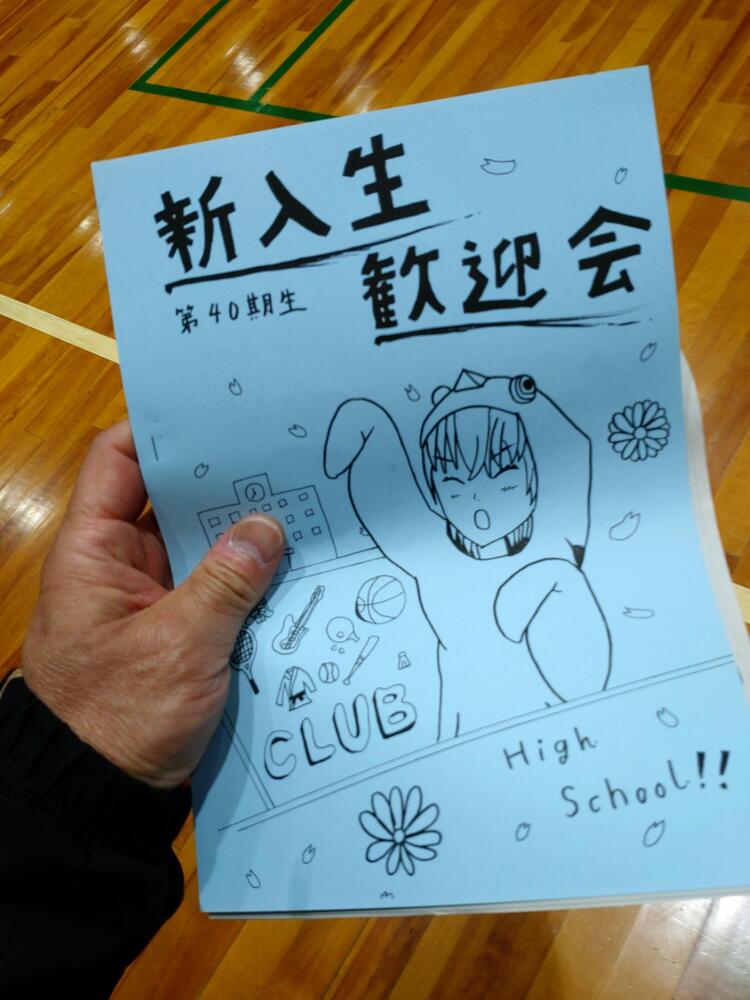 新入生
歓迎会
第40期生
CLUB
High
School!!